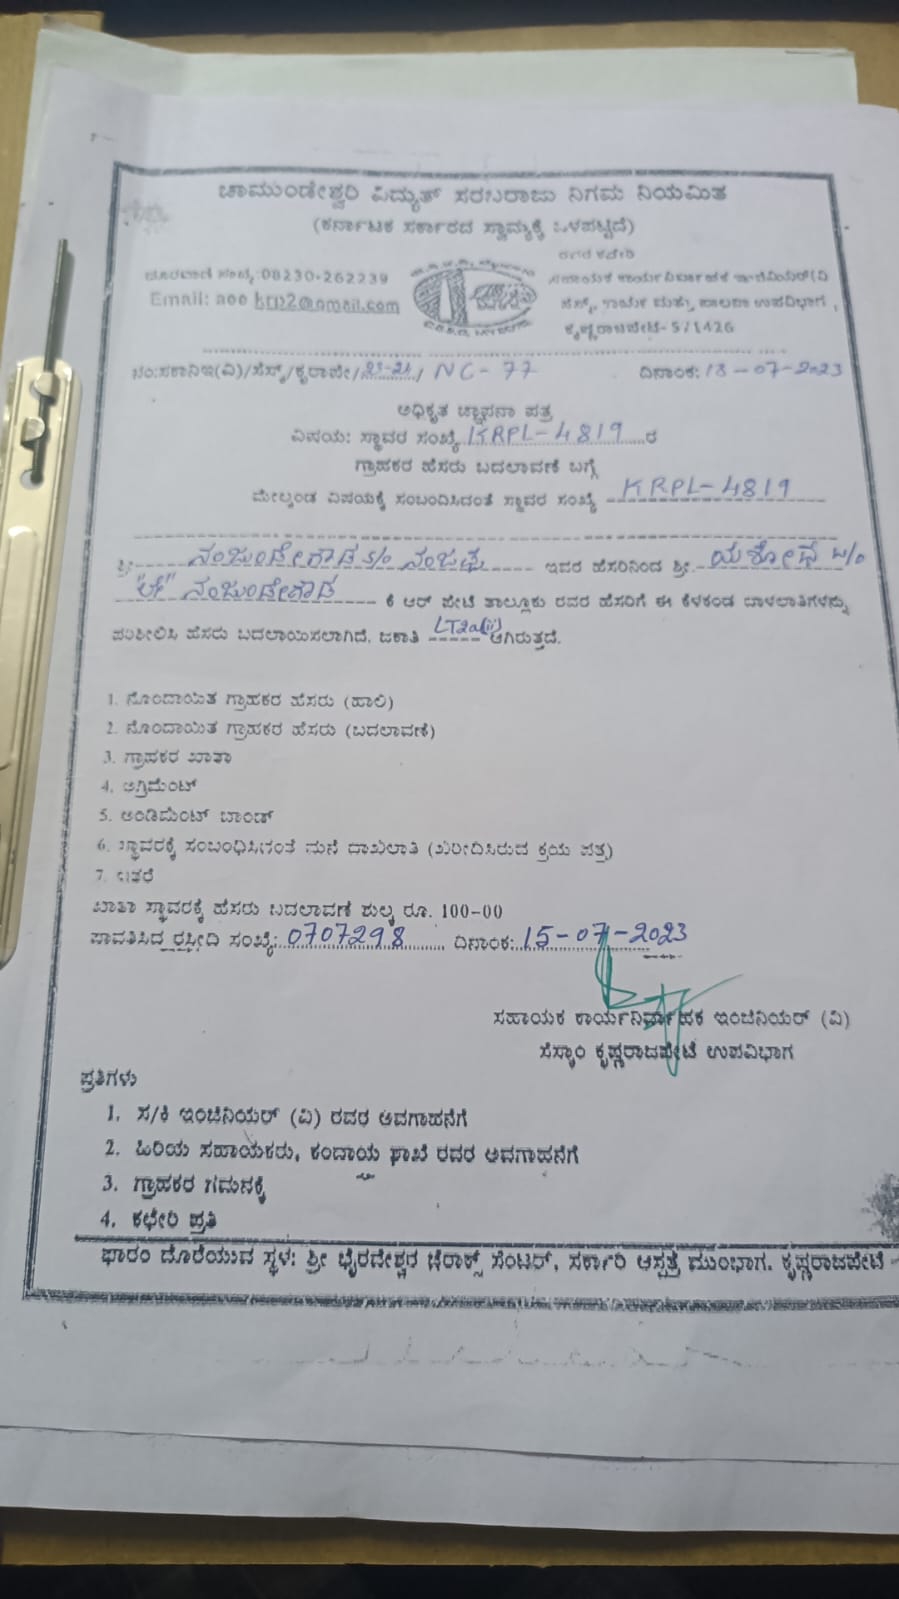 ಚಾಮುಂಡೇಶ್ವರಿ ವಿದ್ಯುತ್ ಸರಬರಾಜು ನಿಗಮ ನಿಯಮಿತ
(ಕರ್ನಾಟಕ ಸರ್ಕಾರದ ಸ್ವಾಮ್ಯಕ್ಕೆ ಒಳಪಟ್ಟಿದೆ)
ದೂರವಾಣಿ ಸಂಖ್ಯೆ:08230-262239
Email: aee krp2@gmail.com
ಸಹಾಯಕ ಕಾರ್ಯನಿರ್ವಾಹಕ ಇಂಜಿನಿಯರ್(ವಿ
ಕಾರ್ಯ ಮತ್ತು ಪಾಲನಾ ಉಪವಿಭಾಗ,
ಕೃಷ್ಣರಾಜಪೇಟೆ-571426
ನಂ:ಸಕಾನಿಇ(ವಿ)/ಸೆಸ್ಕ್/ಕೃರಾಪೇ/ / NC-77 ದಿನಾಂಕ:18-07-2023
ಅಧಿಕೃತ ಜ್ಞಾಪನಾ ಪತ್ರ
ವಿಷಯ: ಸ್ಥಾವರ ಸಂಖ್ಯೆ KRPL-4819 ರ
ಗ್ರಾಹಕರ ಹೆಸರು ಬದಲಾವಣೆ ಬಗ್ಗೆ
ಮೇಲ್ಕಂಡ ವಿಷಯಕ್ಕೆ ಸಂಬಂದಿಸಿದಂತೆ ಸ್ಥಾವರ ಸಂಖ್ಯೆ KRPL-4819
ಶ್ರೀ. ನಂಜುಂಡೇಗೌಡ S/o ಇವರ ಹೆಸರಿನಿಂದ ಶ್ರೀ. ಯಶೋಧ W/o
"ಲೇ" ನಂಜುಂಡೇಗೌಡ ಕೆ ಆರ್ ಪೇಟೆ ತಾಲ್ಲೂಕು ರವರ ಹೆಸರಿಗೆ ಈ ಕೆಳಕಂಡ ದಾಖಲಾತಿಗಳನ್ನು
ಪರಿಶೀಲಿಸಿ ಹೆಸರು ಬದಲಾಯಿಸಲಾಗಿದೆ, ಜಕಾತಿ LT2a(ii) ಆಗಿರುತ್ತದೆ.
1. ನೊಂದಾಯಿತ ಗ್ರಾಹಕರ ಹೆಸರು (ಹಾಲಿ)
2. ನೊಂದಾಯಿತ ಗ್ರಾಹಕರ ಹೆಸರು (ಬದಲಾವಣೆ)
3. ಗ್ರಾಹಕರ ಖಾತಾ
4. ಅಗ್ರಿಮೆಂಟ್
5. ಅಂಡಿಮೆಂಟ್ ಬಾಂಡ್
6. ಸ್ಥಾವರಕ್ಕೆ ಸಂಬಂಧಿಸಿದಂತೆ ಮನೆ ದಾಖಲಾತಿ (ಖರೀದಿಸಿರುವ ಕ್ರಯ ಪತ್ರ)
7. ಇತರೆ
ಖಾತಾ ಸ್ಥಾವರಕ್ಕೆ ಹೆಸರು ಬದಲಾವಣೆ ಶುಲ್ಕ ರೂ. 100-00
ಪಾವತಿಸಿದ ರಸೀದಿ ಸಂಖ್ಯೆ: 0707298 ದಿನಾಂಕ: 15-07-2023
ಸಹಾಯಕ ಕಾರ್ಯನಿರ್ವಾಹಕ ಇಂಜಿನಿಯರ್ (ವಿ)
ಸೆಸ್ಕಾಂ ಕೃಷ್ಣರಾಜಪೇಟೆ ಉಪವಿಭಾಗ
ಪ್ರತಿಗಳು
1. ಸ/ಕಿ ಇಂಜಿನಿಯರ್ (ವಿ) ರವರ ಅವಗಾಹನೆಗೆ
2. ಹಿರಿಯ ಸಹಾಯಕರು, ಕಂದಾಯ ಶಾಖೆ ರವರ ಅವಗಾಹನೆಗೆ
3. ಗ್ರಾಹಕರ ಗಮನಕ್ಕೆ
4. ಕಛೇರಿ ಪ್ರತಿ
ಫಾರಂ ದೊರೆಯುವ ಸ್ಥಳ: ಶ್ರೀ ಭೈರವೇಶ್ವರ ಜೆರಾಕ್ಸ್ ಸೆಂಟರ್, ಸರ್ಕಾರಿ ಆಸ್ಪತ್ರೆ ಮುಂಭಾಗ. ಕೃಷ್ಣರಾಜಪೇಟೆ